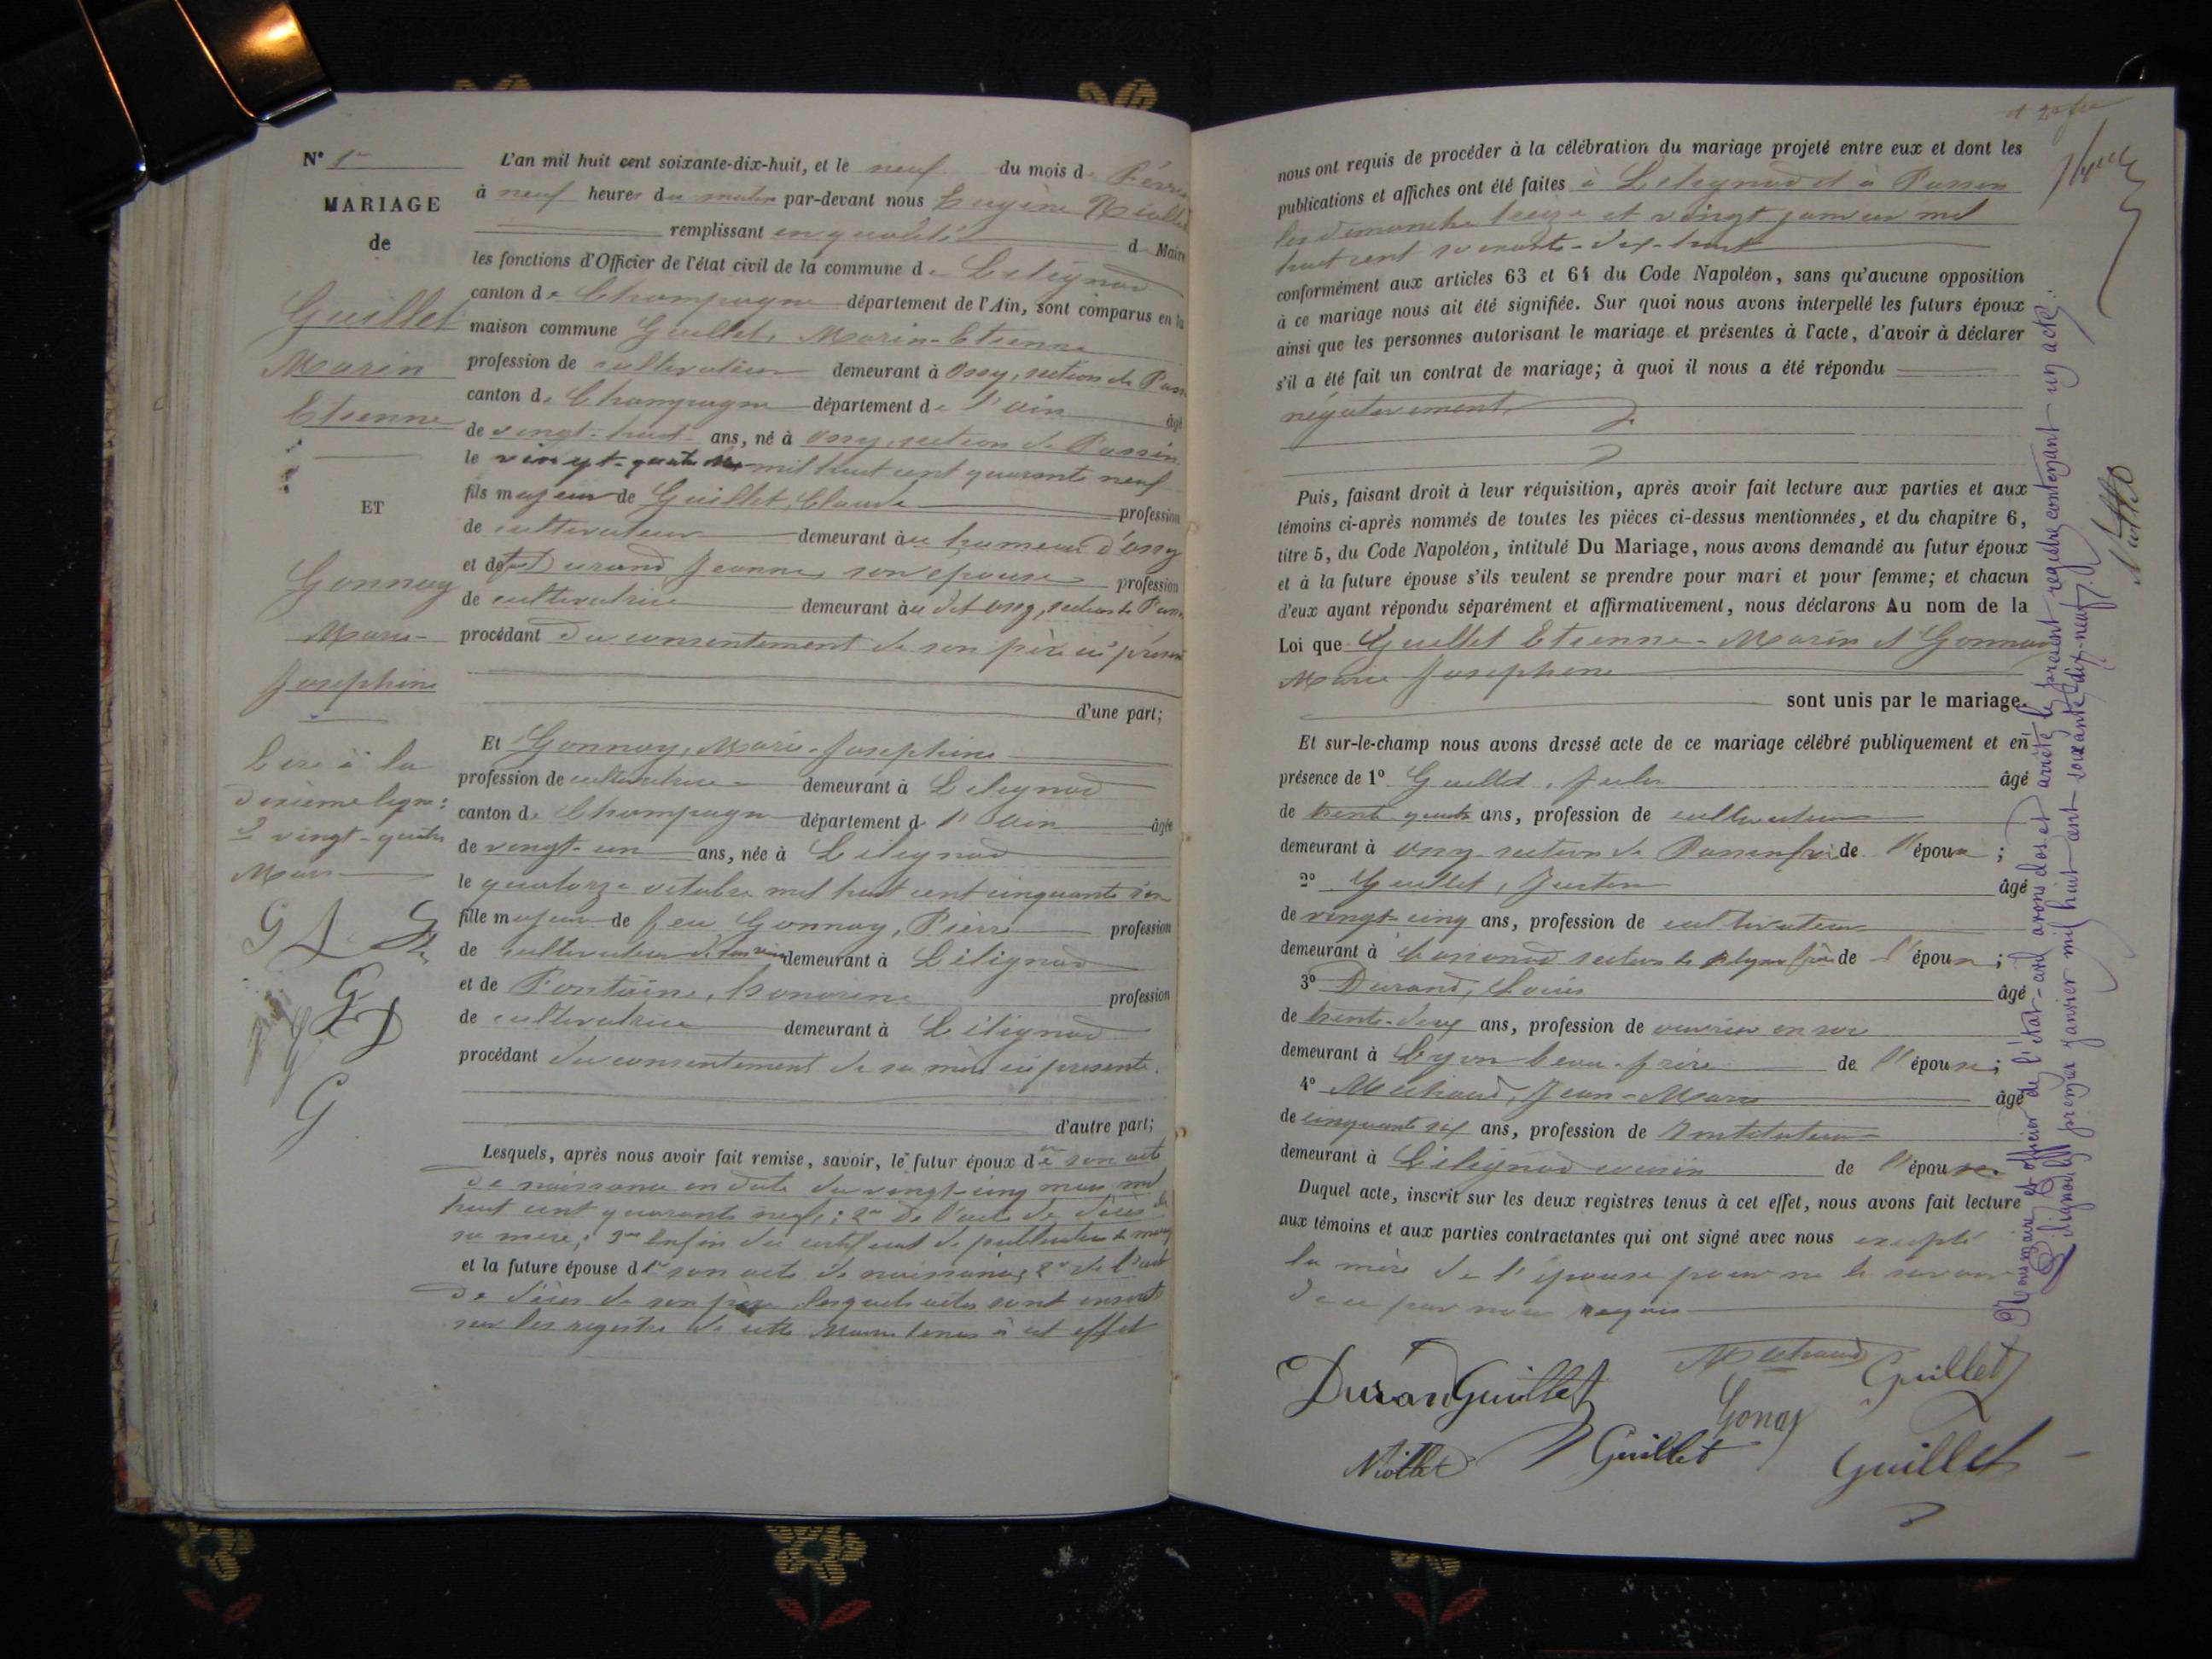 N° 1er
MARIAGE
de
Guillet
Marin
Etienne
ET
Gonnay
Marie-
Josephine
Lire à la
dixième ligne:
vingt-quatre
Mars
G
G
G
L'an mil huit cent soixante-dix-huit, et le neuf du mois de Février
à neuf heures du matin par-devant nous Eugène
remplissant en qualité d Maire
les fonctions d'Officier de l'état civil de la commune de Lilignod
canton de Champagne département de l'Ain, sont comparus en la
maison commune Guillet, Marin-Etienne
profession de cultivateur demeurant à Ossy, section de Passin
canton de Champagne département de l'ain âgé
de vingt-huit ans, né à Ossy, section de Passin
le vingt-quatre mil huit cent quarante neuf
fils majeur de Guillet, Claude profession
de cultivateur demeurant au hameau d'ossy
et de feu Durand Jeanne, son epouse profession
de cultivatrice demeurant au dit Ossy, section de Passin
procédant du consentement de son père ici présent
d'une part;
Et Gonnay, Marie-Josephine
profession de cultivatrice demeurant à Lilignod
canton de Champagne département de l'Ain âgée
de vingt-un ans, née à Lilignod
le quatorze octobre mil huit cent cinquante six
fille majeure de feu Gonnay, Pierre profession
de cultivateur de son vivant demeurant à Lilignod
et de Fontaine, honorine profession
de cultivatrice demeurant à Lilignod
procédant du consentement de sa mère ici presente.
d'autre part;
Lesquels, après nous avoir fait remise, savoir, le futur époux de son acte
de naissance en date du vingt-cinq mars mil
huit cent quarante neuf; 2° De l'acte de décès de
sa mère; 3° Enfin du certificat de publication de
et la future épouse d 1° son acte de naissance, 2° de l'acte
de décès de son père lesquels actes sont inscrits
sur les registres de cette Mairie tenus à cet effet
nous ont requis de procéder à la célébration du mariage projeté entre eux et dont les
publications et affiches ont été faites à Lilignod et à Passin
les dimanche treize et vingt janvier mil
huit cent soixante-dix-huit
conformément aux articles 63 et 64 du Code Napoléon, sans qu'aucune opposition
à ce mariage nous ait été signifiée. Sur quoi nous avons interpellé les futurs époux
ainsi que les personnes autorisant le mariage et présentes à l'acte, d'avoir à déclarer
s'il a été fait un contrat de mariage; à quoi il nous a été répondu
négativement.
Puis, faisant droit à leur réquisition, après avoir fait lecture aux parties et aux
témoins ci-après nommés de toutes les pièces ci-dessus mentionnées, et du chapitre 6,
titre 5, du Code Napoléon, intitulé Du Mariage, nous avons demandé au futur époux
et à la future épouse s'ils veulent se prendre pour mari et pour femme; et chacun
d'eux ayant répondu séparément et affirmativement, nous déclarons Au nom de la
Loi que Guillet Etienne-Marin et Gonnay
Marie Josephine
sont unis par le mariage.
Et sur-le-champ nous avons dressé acte de ce mariage célébré publiquement et en
présence de 1° Guillet, Jules âgé
de trente quatre ans, profession de cultivateur
demeurant à Ossy section de Passin frère de l'époux;
2° Guillet, Justin âgé
de vingt-cinq ans, profession de cultivateur
demeurant à section de frère de l'époux;
3° Durand, Louis âgé
de trente-deux ans, profession de ouvrier en soie
demeurant à Lyon beau-frère de l'épouse;
4° Michaud, Jean-Marie âgé
de cinquante six ans, profession de Instituteur
demeurant à Lilignod cousin de l'épouse.
Duquel acte, inscrit sur les deux registres tenus à cet effet, nous avons fait lecture
aux témoins et aux parties contractantes qui ont signé avec nous excepté
la mère de l'épouse pour ne le savoir
de ce par nous requis
Durand Guillet Michaud Guillet
Gonay
Guillet Guillet
Nous maire et officier de l'état-civil avons clos et arrêté le présent registre contenant un acte.
Lilignod le premier janvier mil huit cent soixante dix-neuf.